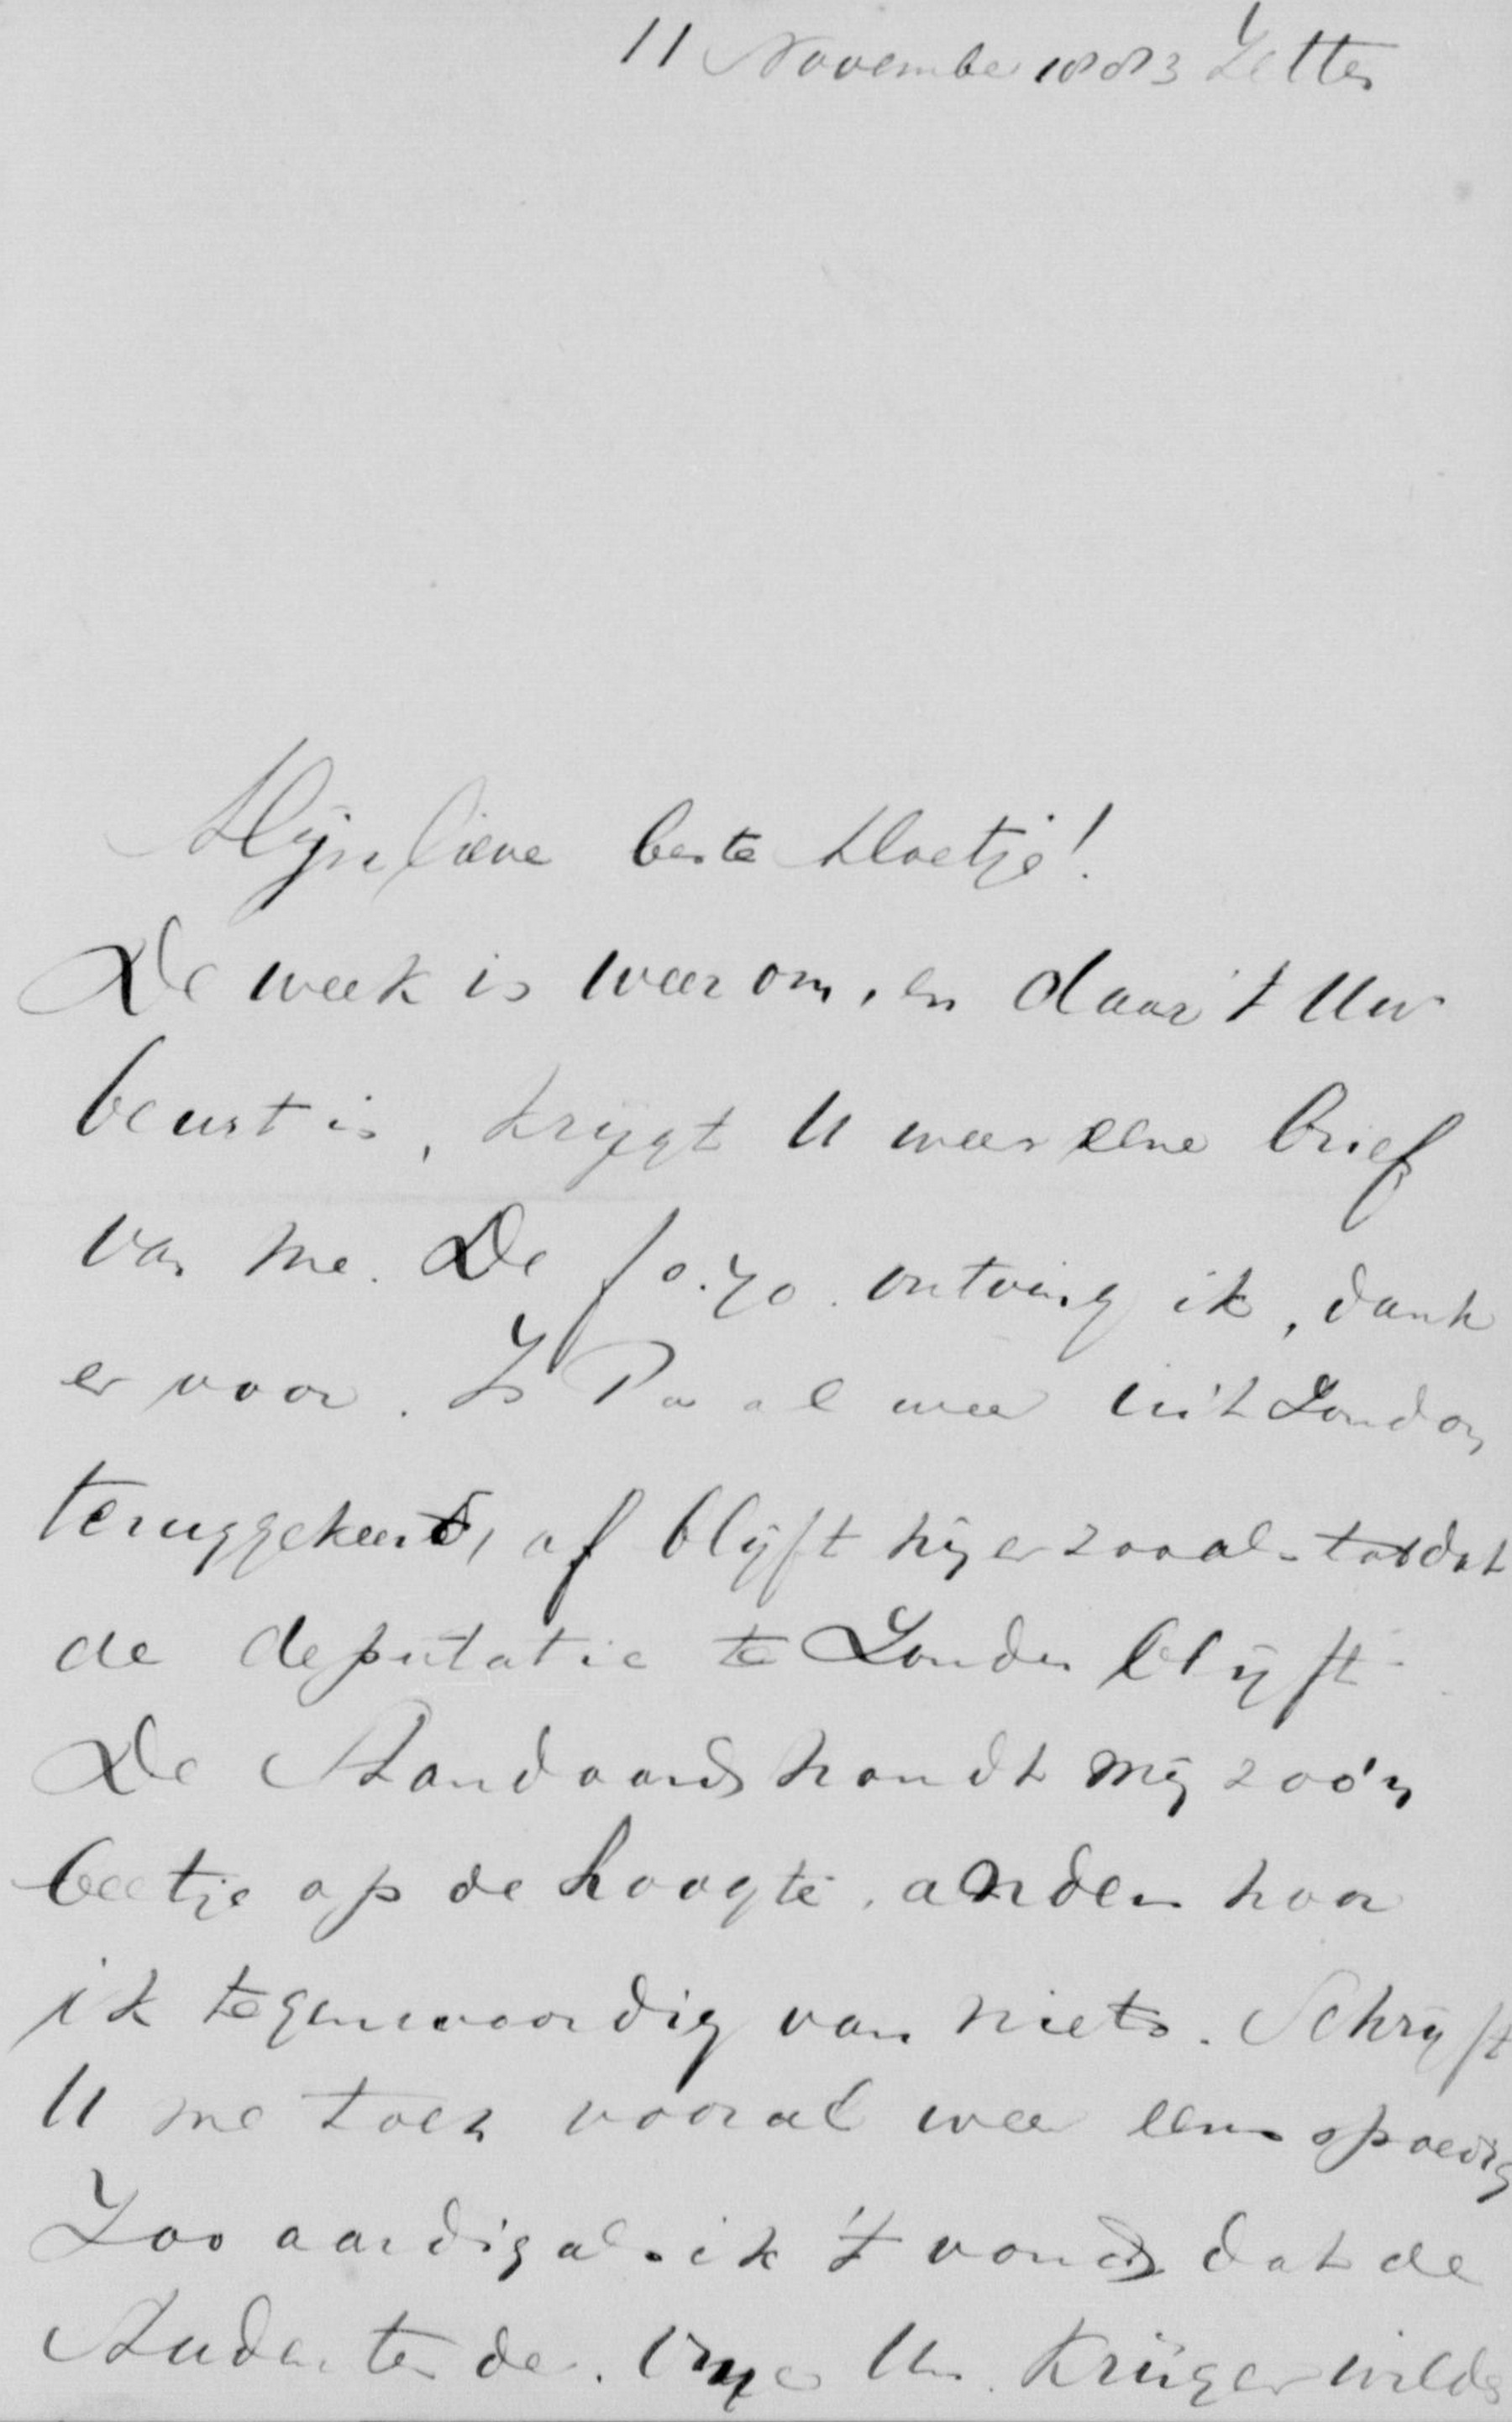 11 November 1883 Zetten
Mijn lieve beste Moetje!
De week is weer om, en daar 't Uw
beurt is, krijgt U weer eene brief
van me. De f 0.70. ontving ik, dank
er voor. Is Pa al weer uit Londen
teruggekeerd, of blijft hij er zooals totdat
de deputatie te Londen blijft.
De Standaard houdt mij zoo'n
beetje op de hoogte, anders hoor
ik tegenwoordig van niets. Schrijft
U me toch vooral weer eens spoedig
Zoo aardig als ik 't vond dat de
Studenten der Vrije Un. Krüger wilde